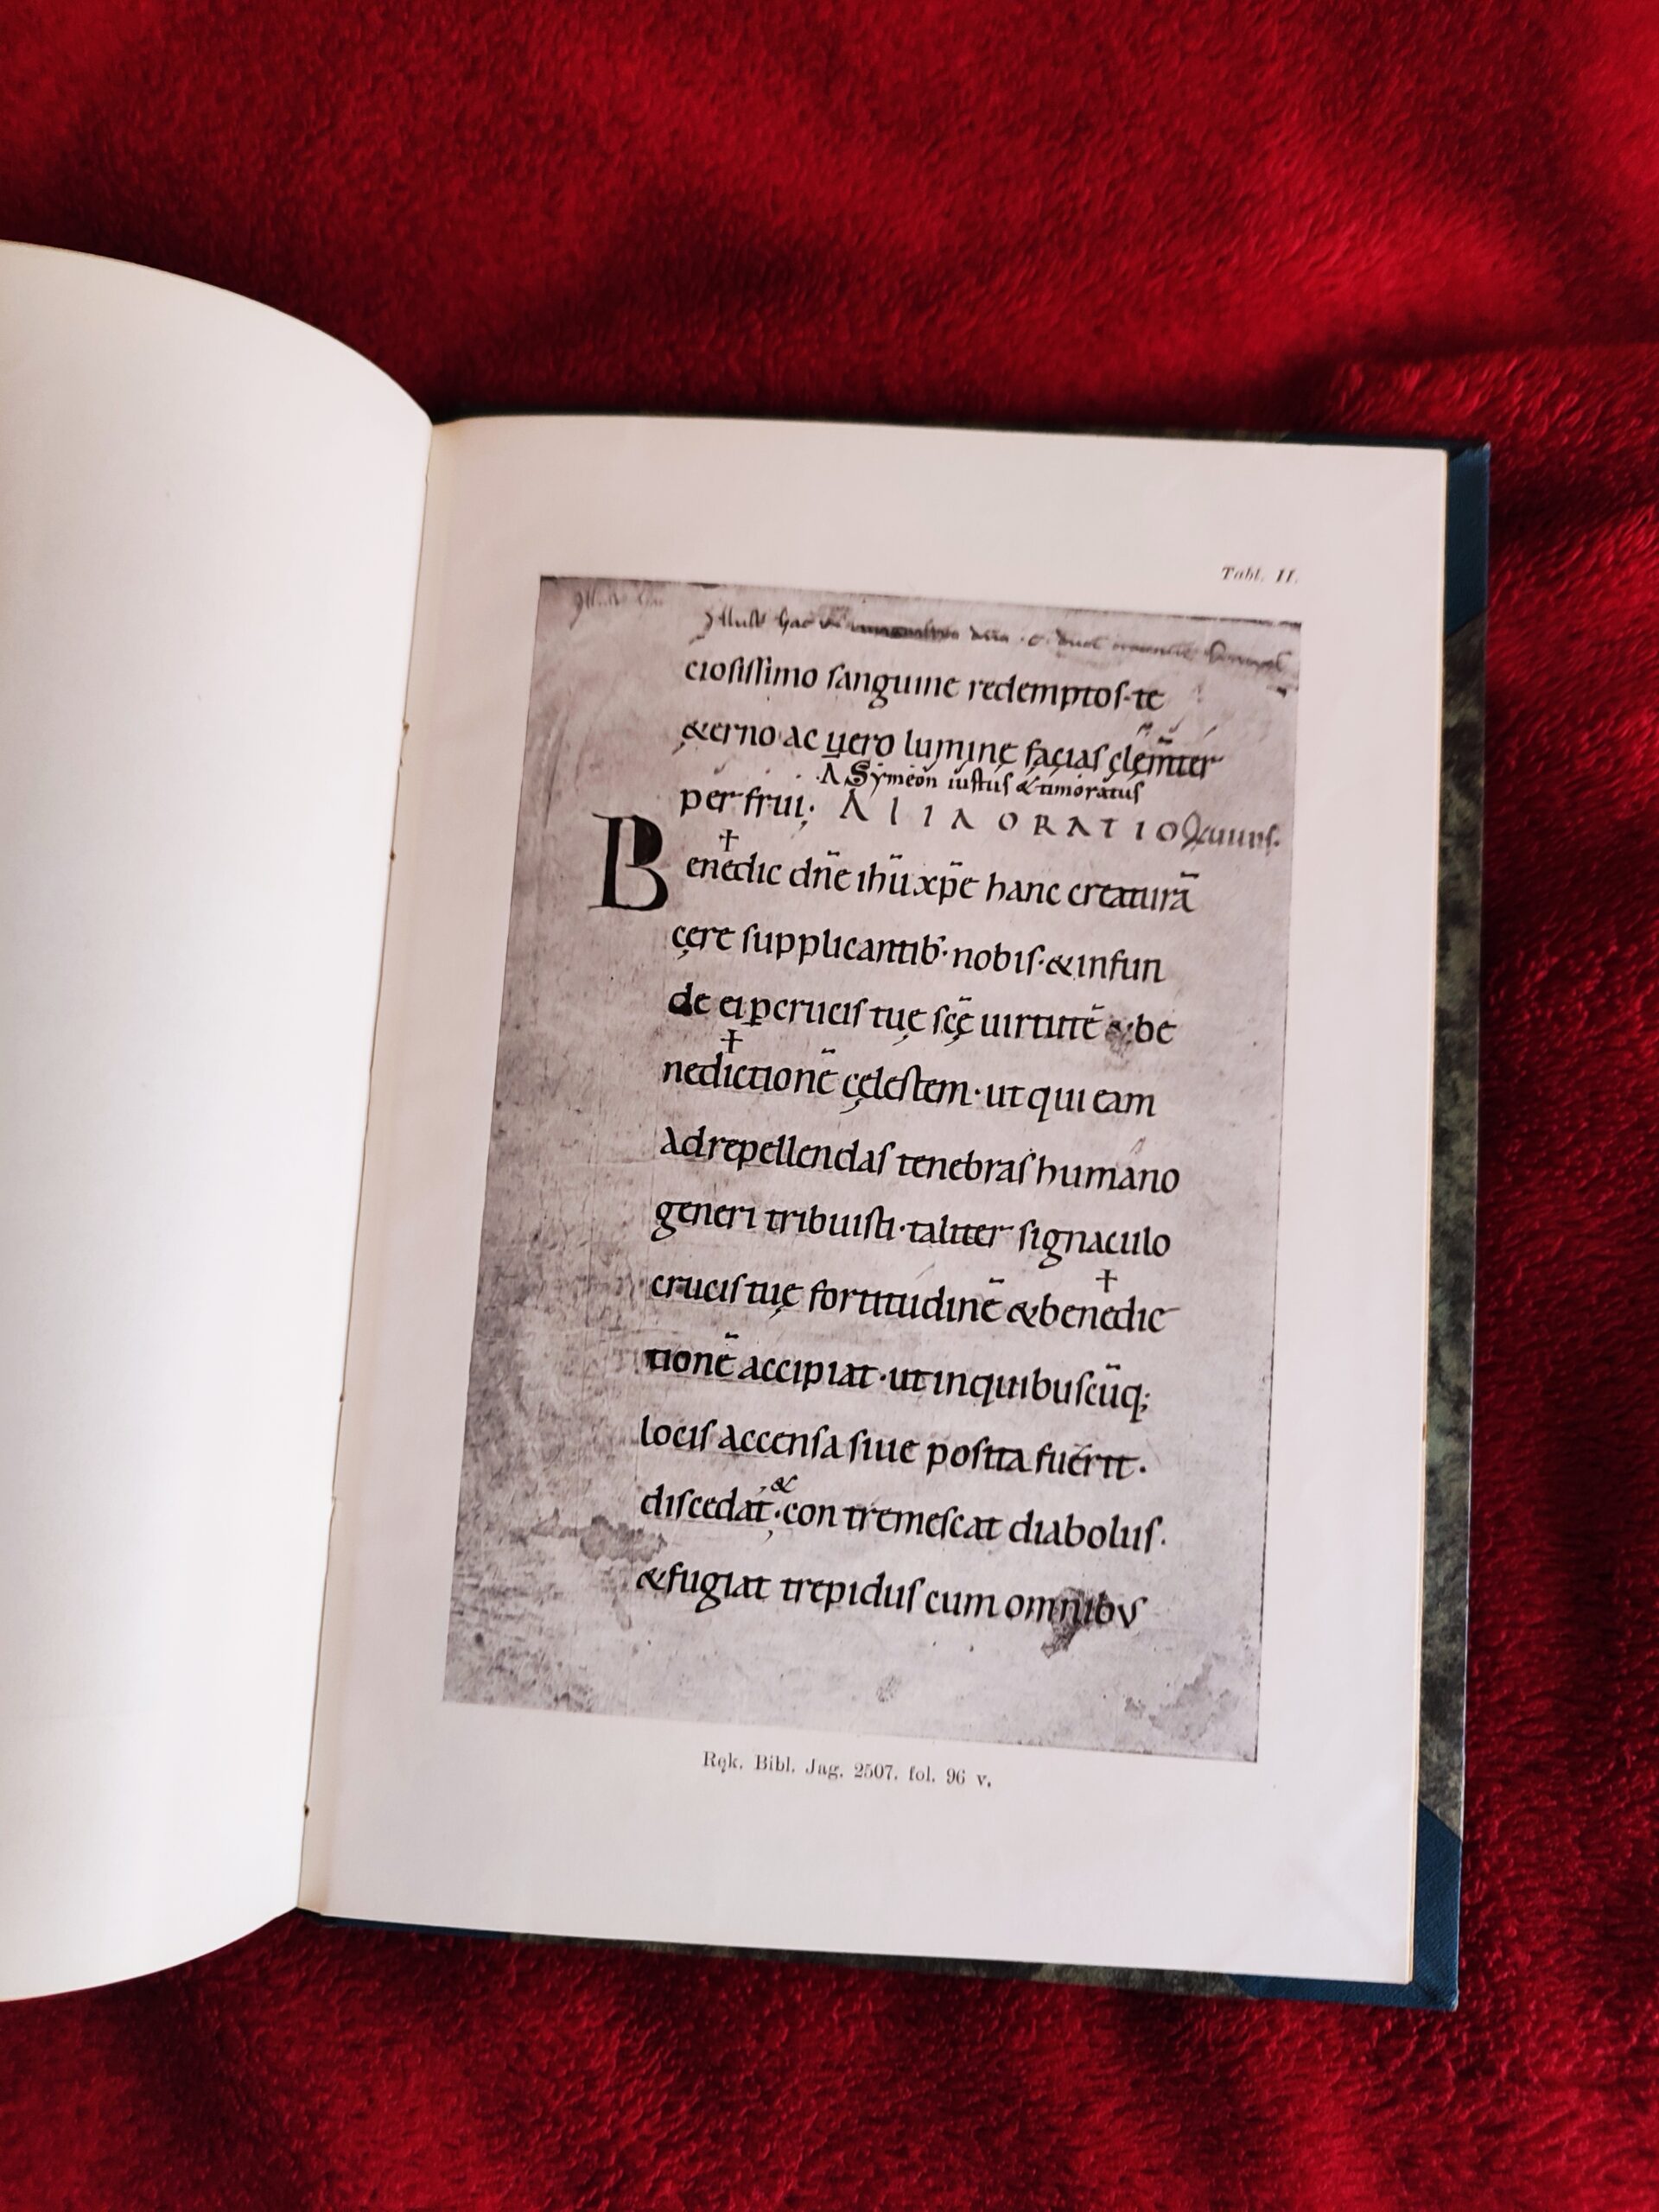 Tabl. II.
cioſiſſimo ſanguine redemptoſ·te
&erno ac uero lumine faciaſ clem̄ter
·A Sýmeón iuſtuſ &timóratuſ
per frui; ALIA ORATIO
Benedic dn̄e ihū xp̄e hanc creaturā
cęre ſupplicantib·nobiſ·&infun
de ei p̲cruciſ tuę ſc̄ę uirtutē &be
nedictionē cęleſtem·ut qui eam
adrepellendaſ tenebraſ humáno
generi tribuiſti·taliter ſignaculo
cruciſ tuę fortitudinē &benedic
tionē accipiat·ut inquibuſcūq;
lociſ accenſa ſiue poſita fuérit·
&
diſcedat·con tremeſcat diaboluſ·
&fugiat trepiduſ cum omnibuſ
Ręk. Bibl. Jag. 2507. fol. 96 v.